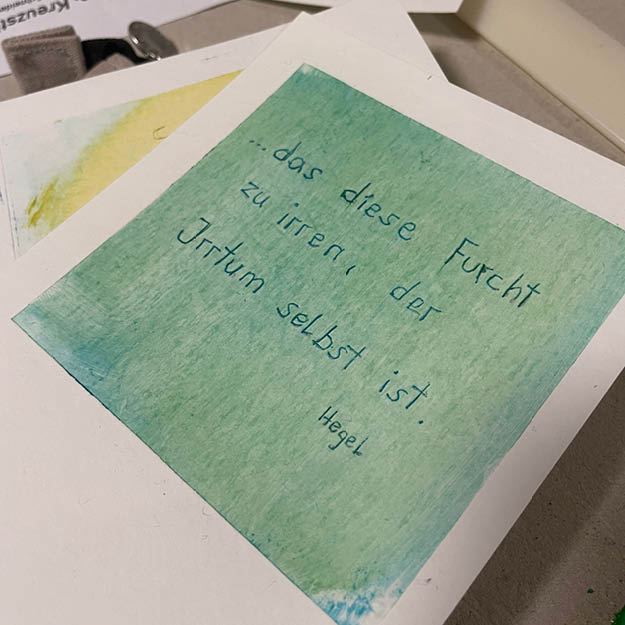 Kreuzst
...das diese Furcht
zu irren, der
Irrtum selbst ist.
Hegel